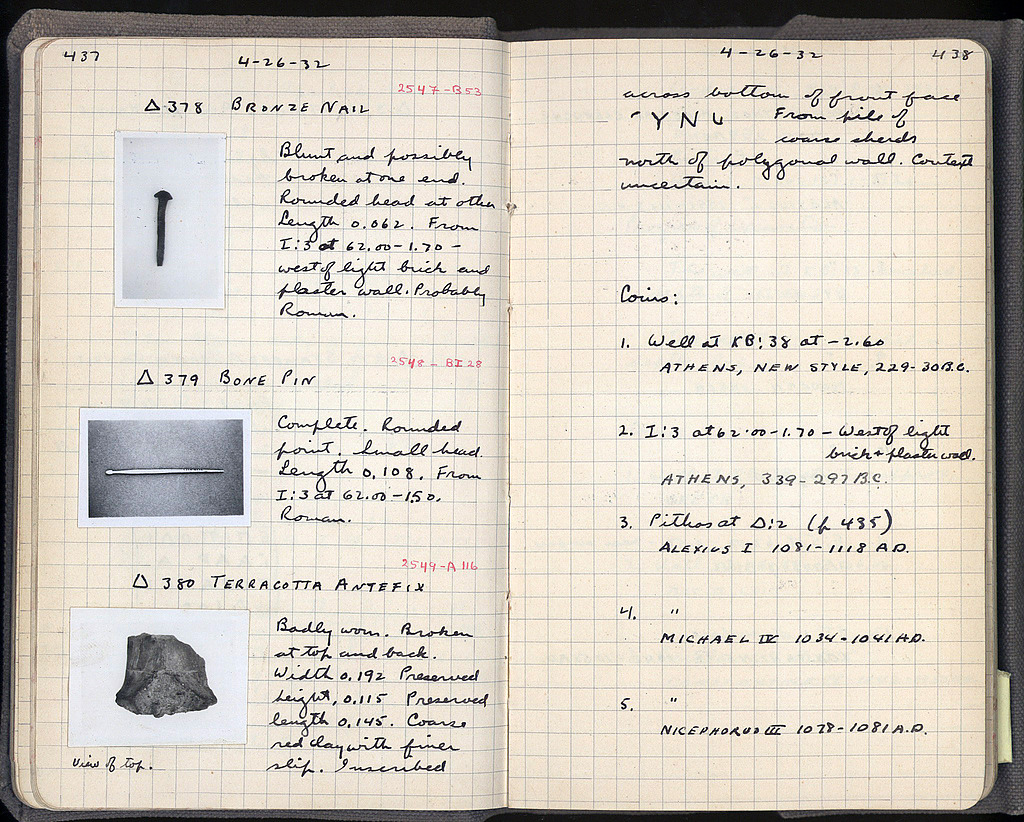 437
4-26-32
2547-B53
Δ 378 BRONZE NAIL
Blunt and possibly
broken at one end.
Rounded head at other
Length 0.062. From
I:3 at 62.00-1.70 -
west of light brick and
plaster wall. Probably
Roman.
2548 - BI 28
Δ 379 BONE PIN
Complete. Rounded
point. Small head.
Length 0.108. From
I:3 at 62.00-1.50.
Roman.
2549-A 116
Δ 380 TERRACOTTA ANTEFIX
Badly worn. Broken
at top and back.
Width 0.192 Preserved
height, 0.115 Preserved
length 0.145. Coarse
red clay with finer
slip. Inscribed
View of top.
4-26-32
438
across bottom of front face
ΥΝ From pile of
coarse sherds
north of polygonal wall. Context
uncertain.
Coins:
1. Well at KB:38 at -2.60
ATHENS, NEW STYLE, 229-30 B.C.
2. I:3 at 62.00-1.70 - West of light
brick + plaster wall.
ATHENS, 339-297 B.C.
3. Pithos at Δ:2 (p 435)
ALEXIUS I 1081-1118 A.D.
4. "
MICHAEL IV 1034-1041 A.D.
5. "
NICEPHORUS III 1078-1081 A.D.